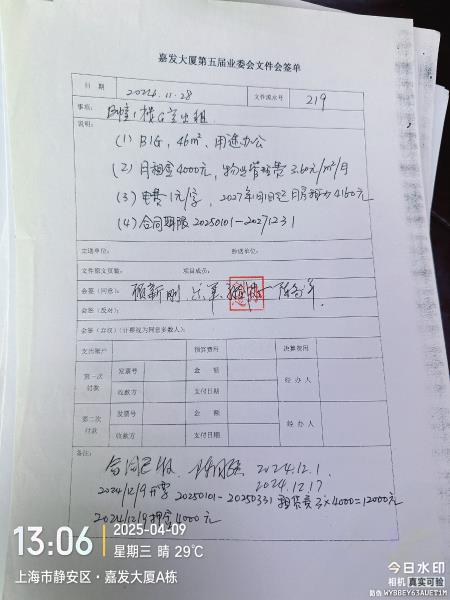 嘉发大厦第五届业委会文件会签单
日 期 2024.11.28 文件流水号 219
事项: B幢1楼G室出租
说明:
(1) B1G, 46m², 用途办公
(2) 月租金4000元, 物业管理费 3.60元/m²/月
(3) 电费1元/字, 2027年1月1日起月房租为4160元
(4) 合同期限 20250101-20271231
主送单位: 抄送单位:
文件原文页数: 项目成员:
会签(同意): 顾新刚
会签(反对):
会签(弃权)(计票视为同意多数人):
支出账户 预算费用 决算费用
第一次付款 发票号 金 额 经 办 人
收款方 支付日期
第二次付款 发票号 金 额 经 办 人
收款方 支付日期
备注:
合同已收 2024.12.1
2024.12.17
2024/12/9开票 20250101-20250331 租赁费 3×4000=12000元
2024/12/9押金4000元
13:06
2025-04-09
星期三 晴 29℃
上海市静安区·嘉发大厦A栋
今日水印
相机 真实可验
防伪 WYBBEY63AUET1M